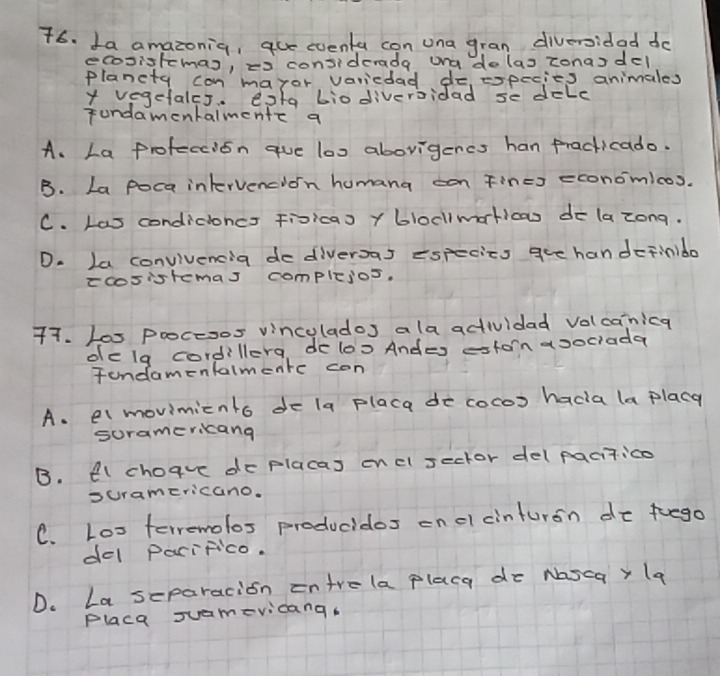 76. La amazonia, que cuenta con una gran diversidad de
ecosistemas, es considerada una de las zonas del
planeta con mayor variedad de especies animales
y vegetales. esta biodiversidad se debe
fundamentalmente a
A. La protección que los aborigenes han practicado.
B. La poca intervención humana con fines económicos.
C. Las condiciones fisicas y bioclimaticas de la zona.
D. La convivencia de diversas especies que han definido
ecosistemas complejos.
77. Los procesos vinculados a la actividad volcánica
de la cordillera de los Andes están asociada
fundamentalmente con
A. el movimiento de la placa de cocos hacia la placa
suramericana
B. el choque de placas en el sector del pacifico
suramericano.
C. Los terremotos producidos en el cinturón de fuego
del pacifico.
D. La separación entre la placa de Nasca y la
placa suamericana.